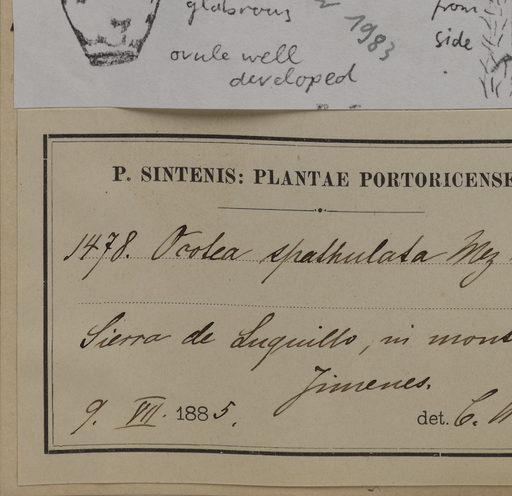 glabrous
1983
from
side
ovule well
developed
P. SINTENIS: PLANTAE PORTORICENSE
1478. Ocotea spathulata Mez
Sierra de Luquillo, in mont
Jimenes.
9. VII. 1885.
det. C. M